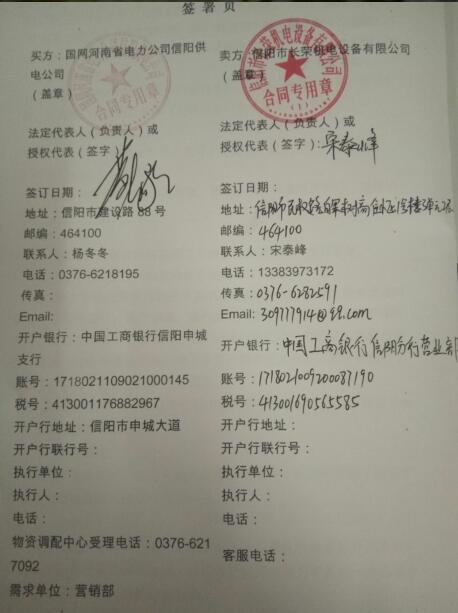 签署页
买方：国网河南省电力公司信阳供
电公司
（盖章）
法定代表人（负责人）或
授权代表（签字）
签订日期：
地址：信阳市建设路88号
邮编：464100
联系人：杨冬冬
电话：0376-6218195
传真：
Email:
开户银行：中国工商银行信阳申城
支行
账号：1718021109021000145
税号：413001176882967
开户行地址：信阳市申城大道
开户行联行号：
执行单位：
执行人：
电话：
物资调配中心受理电话：0376-621
7092
需求单位：营销部
卖方：信阳市长荣机电设备有限公司
（盖章）
信阳市长荣机电设备有限公司
合同专用章
（1）
法定代表人（负责人）或
授权代表（签字）：宋泰峰
签订日期：
地址：信阳市
邮编：464100
联系人：宋泰峰
电话：13383973172
传真：0376-6282591
Email: 309777914@qq.com
开户银行：中国工商银行信阳分行营业部
账号：1718021009200087190
税号：413001690565585
开户行地址：
开户行联行号：
执行单位：
执行人：
电话：
客服电话：
合同专用章